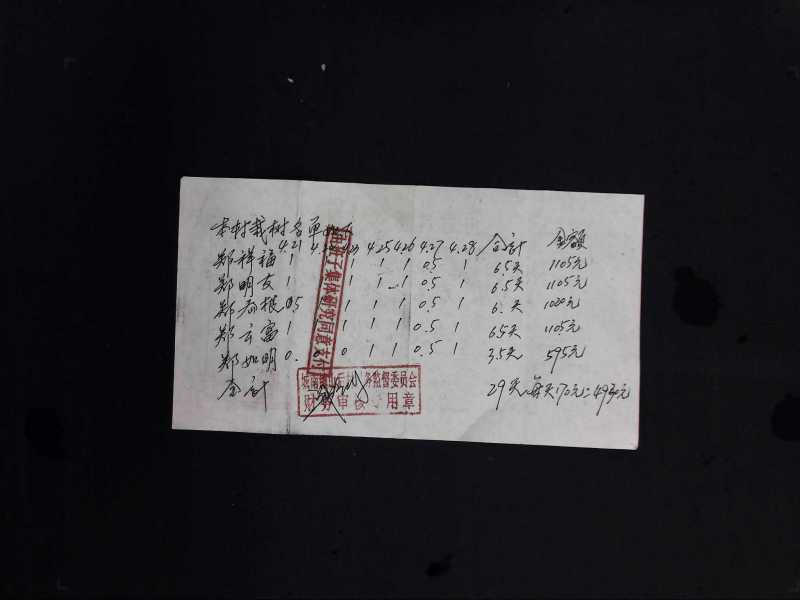 本村栽树名单
4.21 4.25 4.26 4.27 4.28 合计 金额
郑祥福 1 1 1 1 0.5 1 6.5天 1105元
郑明友 1 1 1 1 0.5 1 6.5天 1105元
郑 根 0.5 1 1 1 0.5 1 6.天 1020元
郑云富 1 1 1 1 0.5 1 6.5天 1105元
郑如明 0. 0 1 1 0.5 1 3.5天 595元
合计 29天每天170元=4930元
班子集体研究同意支付
务监督委员会
财务审核专用章